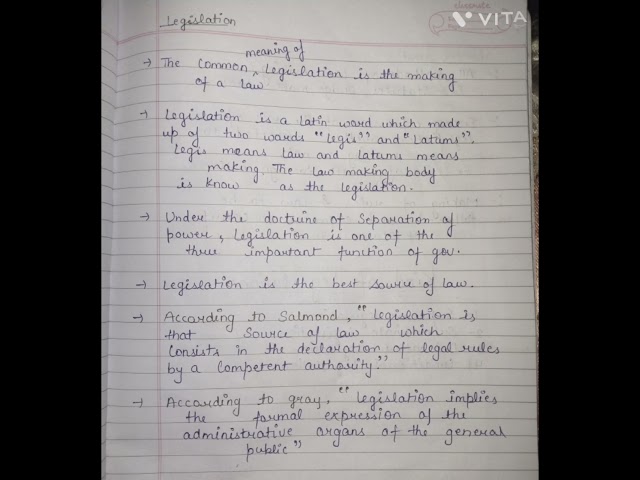 classmate
VITA
Legislation
meaning of
→ The Common ^ Legislation is the making
of a law
→ Legislation is a latin word which made
up of two words "legis" and "Latums".
Legis means law and latums means
making. The law making body
is know as the legislation.
→ Under the doctrine of Separation of
power, Legislation is one of the
three important function of gov.
→ Legislation is the best source of law.
→ According to Salmond, "Legislation is
that Source of law which
Consists in the declaration of legal rules
by a Competent authority."
→ According to gray, "legislation implies
the formal expression of the
administrative organs of the general
public"